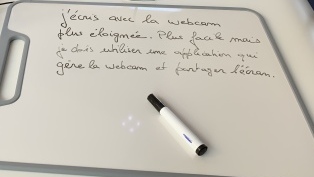 j'écris avec la webcam
plus éloignée. Plus facile mais
je dois utiliser une application qui
gère la webcam et partager l'écran.